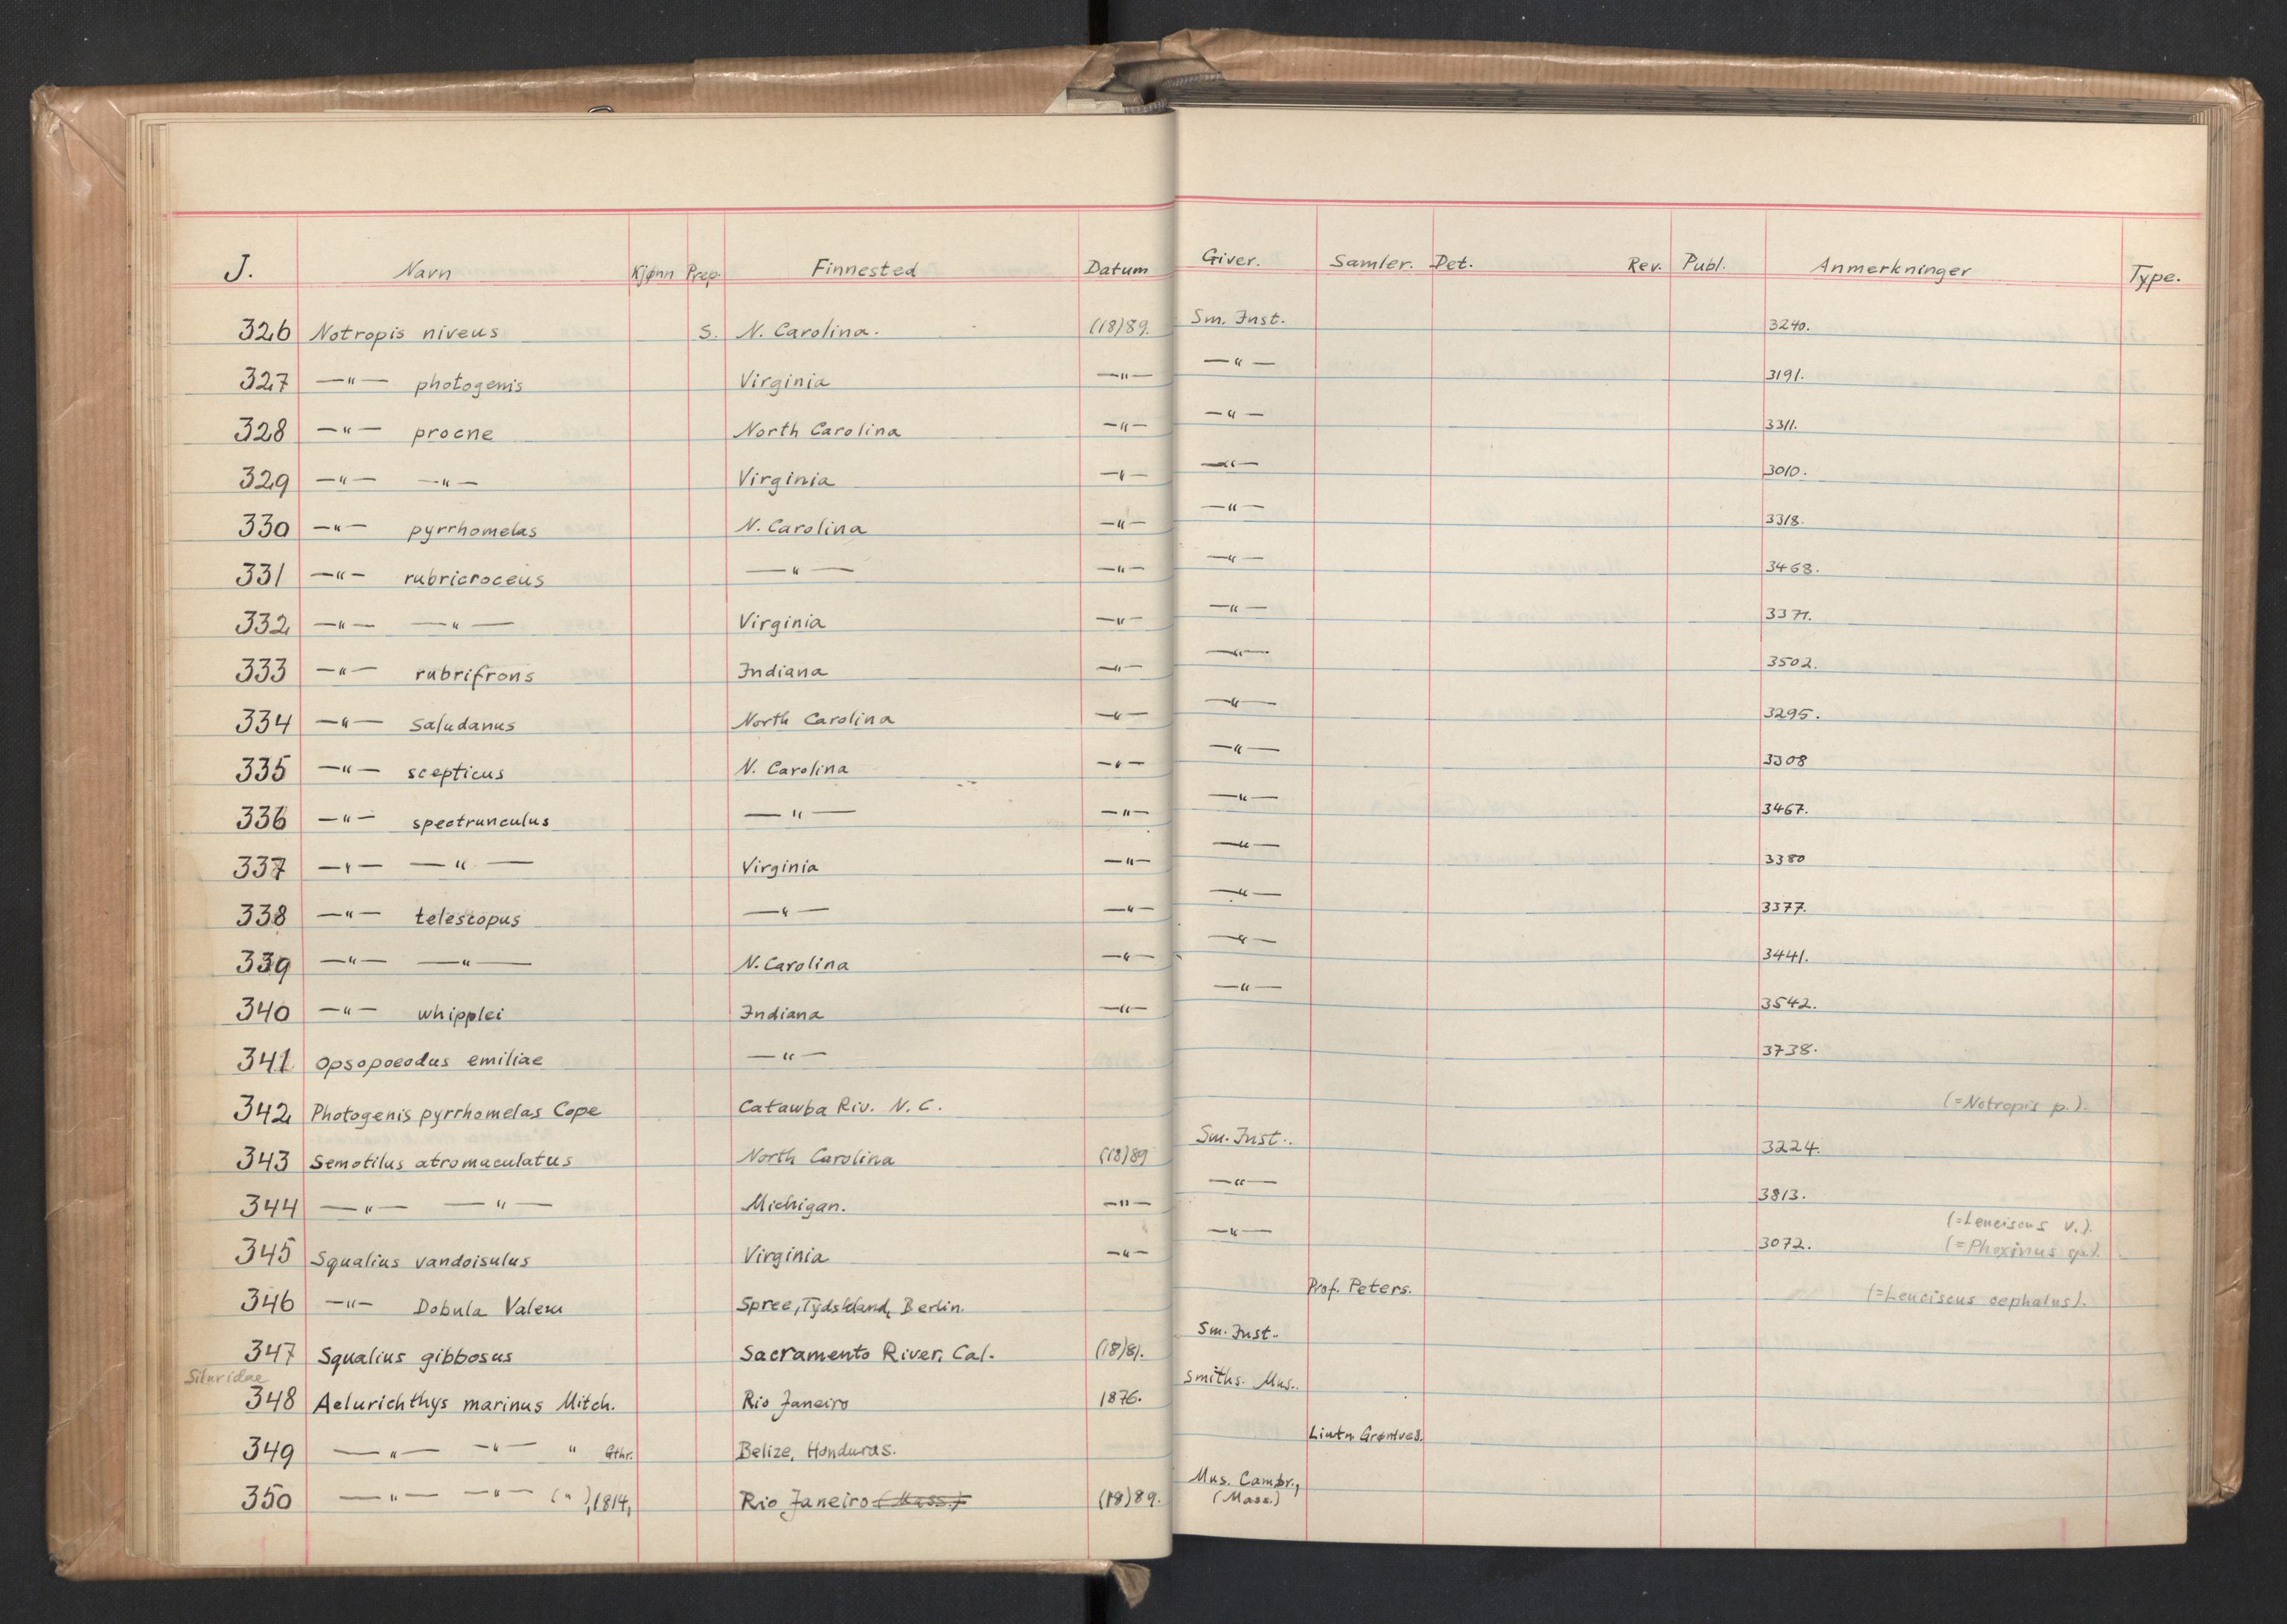 J. Navn Kjønn Prep. Finnested Datum Giver. Samler. Det. Rev. Publ. Anmerkninger Type.
326 Notropis niveus S. N. Carolina. (18)89. Sm. Inst. 3240.
327 —"— photogenis Virginia —"— —"— 3191.
328 —"— procne North Carolina —"— —"— 3311.
329 —"— —"— Virginia —"— —"— 3010.
330 —"— pyrrhomelas N. Carolina —"— —"— 3318.
331 —"— rubricroceus —"— —"— —"— 3468.
332 —"— —"— Virginia —"— —"— 3371.
333 —"— rubrifrons Indiana —"— —"— 3502.
334 —"— saludanus North Carolina —"— —"— 3295.
335 —"— scepticus N. Carolina —"— —"— 3308
336 —"— spectrunculus —"— —"— —"— 3467.
337 —"— —"— Virginia —"— —"— 3380
338 —"— telescopus —"— —"— —"— 3377.
339 —"— —"— N. Carolina —"— —"— 3441.
340 —"— whipplei Indiana —"— —"— 3542.
341 Opsopoeodus emiliae —"— 3738.
342 Photogenis pyrrhomelas Cope Catawba Riv. N. C. (=Notropis p.).
343 Semotilus atromaculatus North Carolina (18)89 Sm. Inst.. 3224.
344 —"— —"— Michigan. —"— —"— 3813.
(=Leuciscus v.).
345 Squalius vandoisulus Virginia —"— —"— 3072. (=Phoxinus
346 —"— Dobula Spree, Tydskland, Berlin. Prof. Peters. (=Leuciscus cephalus).
347 Squalius gibbosus Sacramento River, Cal. (18)81. Sm. Inst.
Siluridae
348 Aelurichthys marinus Mitch. Rio Janeiro 1876. Smiths. Mus..
349 —"— —"— " Gthr. Belize, Honduras. Lintn Grøntved.
350 —"— —"— (") ,1814, Rio Janeiro (Mass.) (18)89. Mus. Cambr.,
(Mass.)